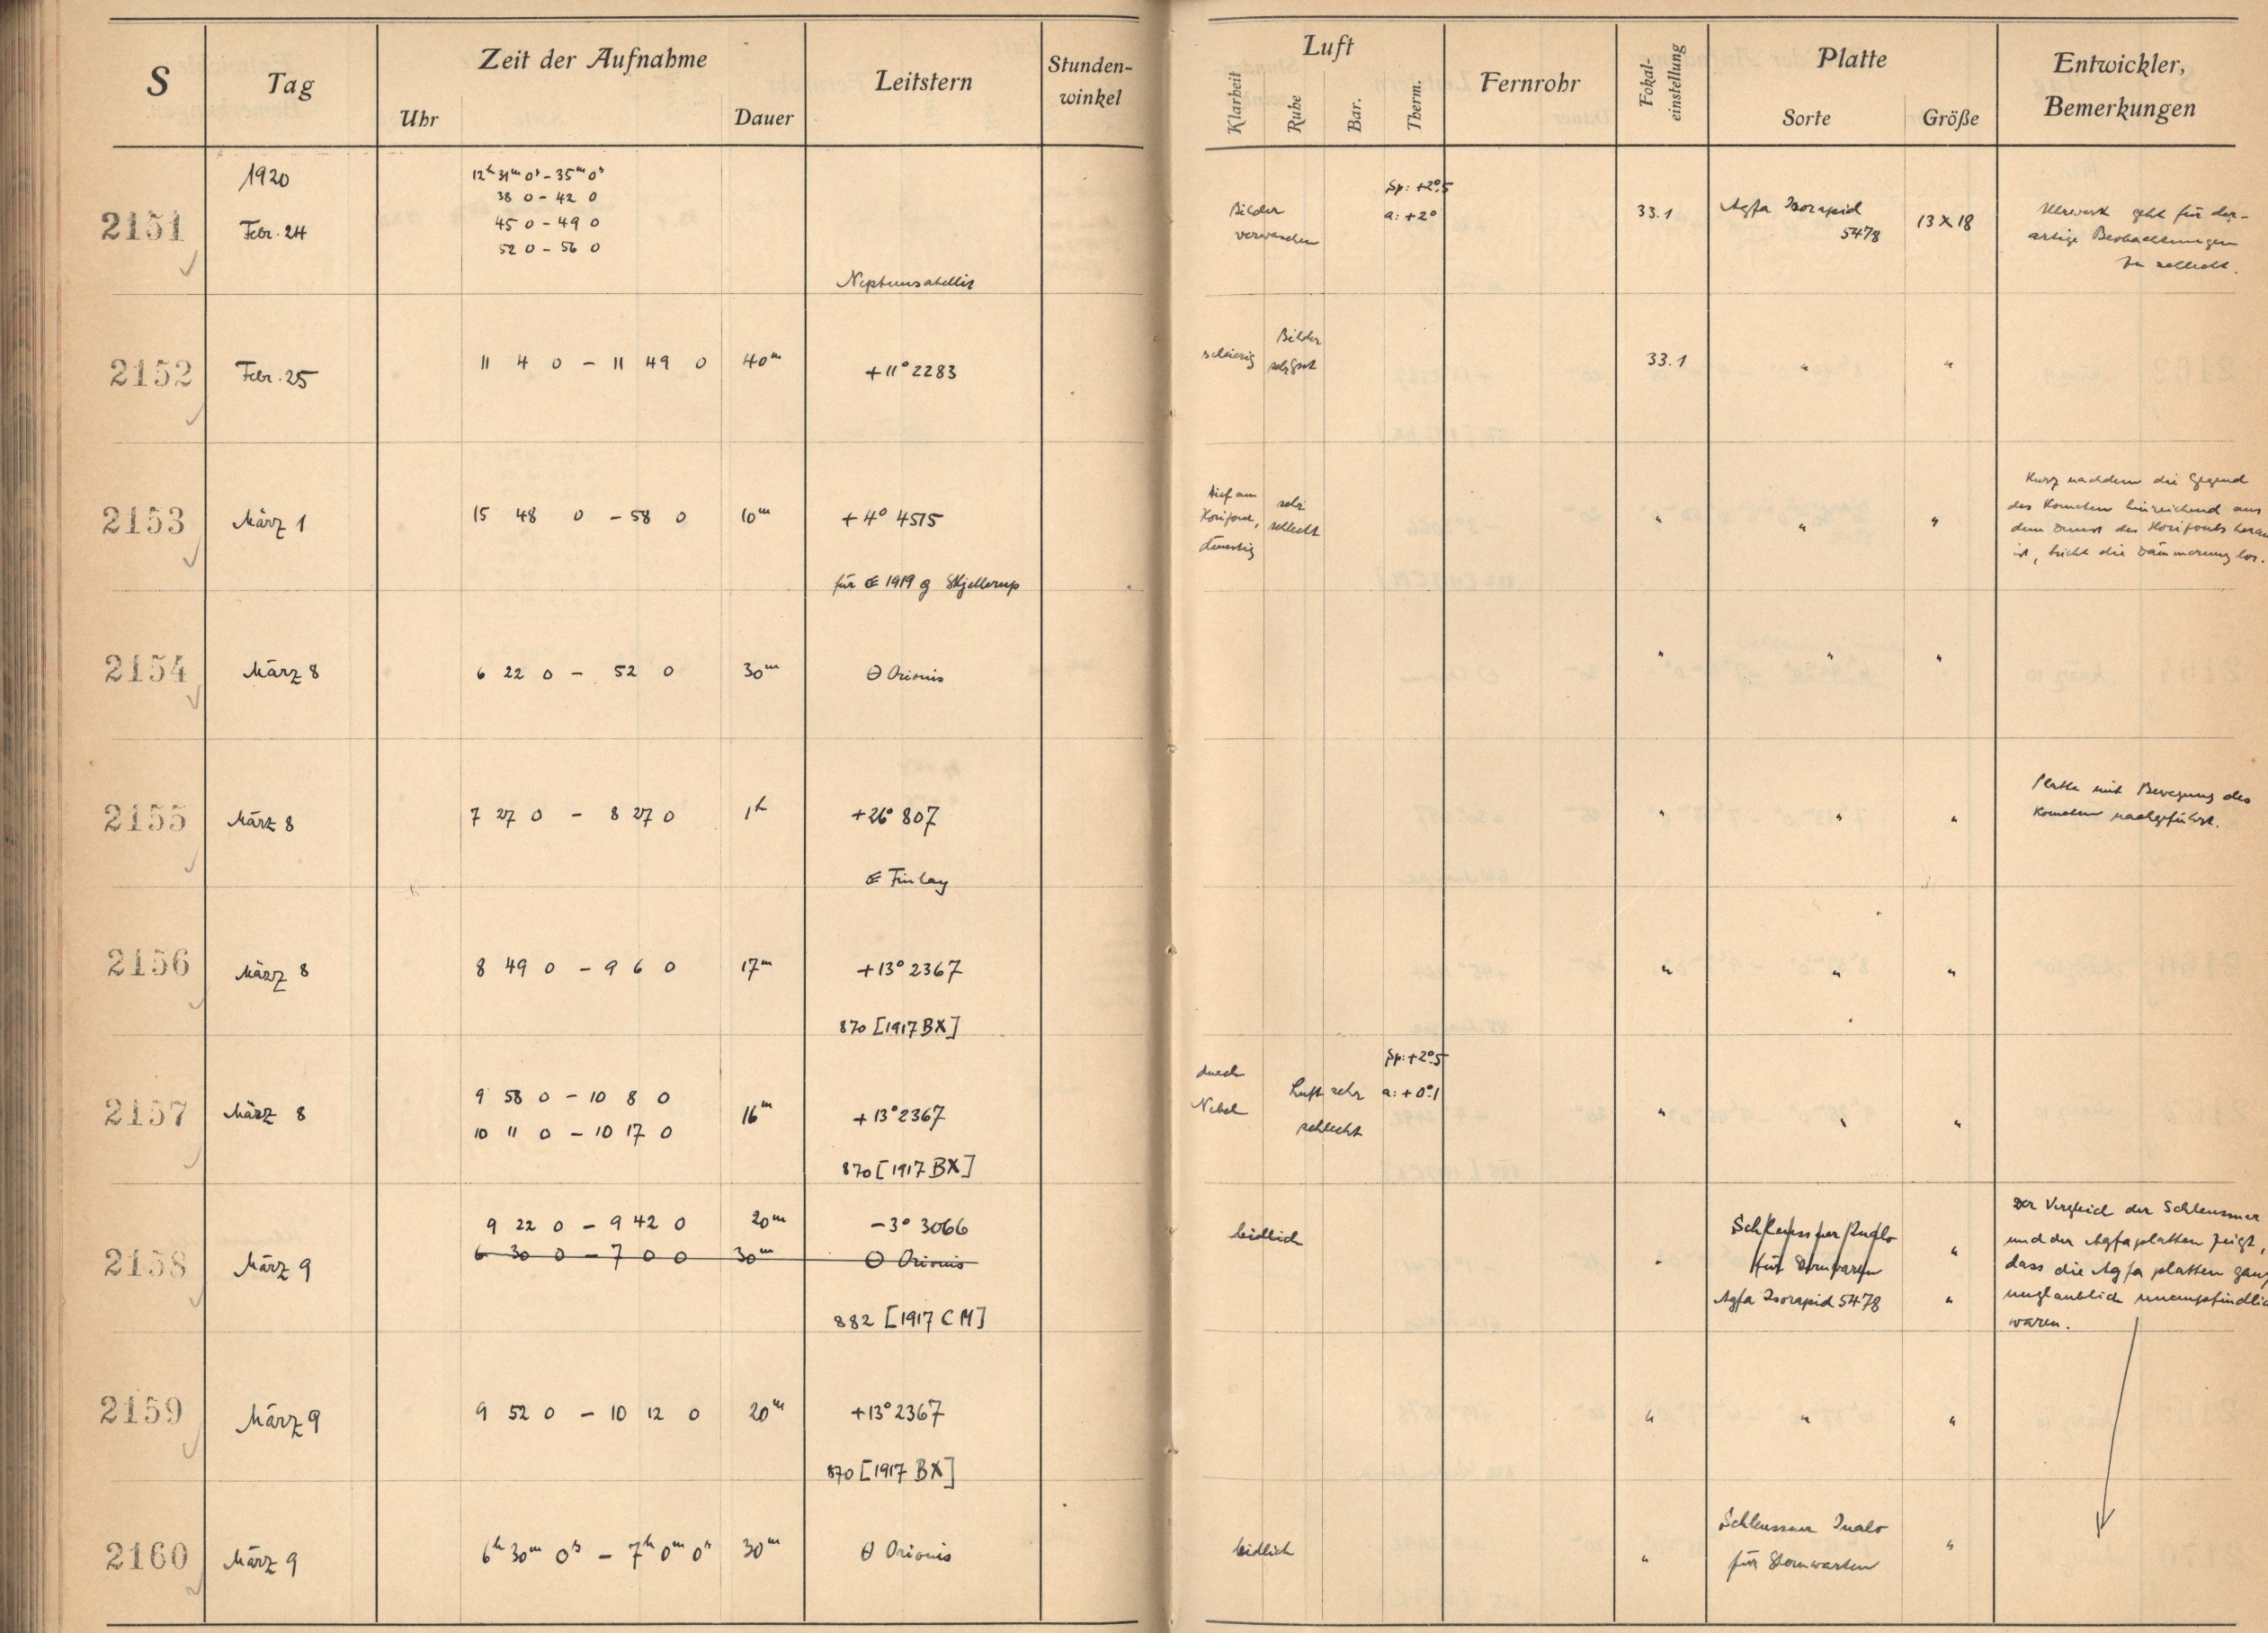 S
Tag
Zeit der Aufnahme
Uhr
Dauer
Leitstern
Stunden-
winkel
Luft
Klarheit
Ruhe
Bar.
Therm.
Fernrohr
Fokal-
einstellung
Platte
Sorte
Größe
Entwickler,
Bemerkungen
2151
1920
Febr. 24
12h 31m 0s – 35m 0s
38 0 – 42 0
45 0 – 49 0
52 0 – 56 0
Neptunsatellit
Bilder
verwaschen
Sp: +2°.5
a: +2°
33.1
Agfa Isorapid
5478
13 X 18
Uhrwerk geht für der-
artige Beobachtungen
zu schlecht.
2152
Febr. 25
11 4 0 – 11 49 0
40m
+11° 2283
schleierig
Bilder
sehr gut
33.1
"
"
2153
März 1
15 48 0 – 58 0
10m
+4° 4515
für ☄ 1919 g Skjellerup
tief am
Horizont,
dunstig
sehr
schlecht
"
"
"
Kurz nachdem die Gegend
des Kometen hinreichend aus
dem Dunst des Horizonts heraus
ist, bricht die Dämmerung los.
2154
März 8
6 22 0 – 52 0
30m
Θ Orionis
"
"
"
2155
März 8
7 27 0 – 8 27 0
1h
+26° 807
☄ Finlay
"
"
"
Platte mit Bewegung des
Kometen nachgeführt.
2156
März 8
8 49 0 – 9 6 0
17m
+13° 2367
870 [1917 BX]
"
"
"
2157
März 8
9 58 0 – 10 8 0
10 11 0 – 10 17 0
16m
+13° 2367
870 [1917 BX]
durch
Nebel
Luft sehr
schlecht
Sp: +2°.5
a: +0°.1
"
"
"
2158
März 9
9 22 0 – 9 42 0
20m
–3° 3066
6 30 0 – 7 0 0
30m
Θ Orionis
882 [1917 CM]
leidlich
"
Schleussner Inalo
für Sternwarten
"
Agfa Isorapid 5478
"
Der Vergleich der Schleussner
und der Agfaplatten zeigt,
dass die Agfa platten ganz
unglaublich unempfindlich
waren.
2159
März 9
9 52 0 – 10 12 0
20m
+13° 2367
870 [1917 BX]
"
"
"
2160
März 9
6h 30m 0s – 7h 0m 0s
30m
Θ Orionis
leidlich
"
Schleussner Inalo
für Sternwarten
"